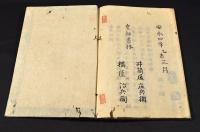 安永四年乙未三月
書林
井筒屋庄兵衛
橘屋治兵衛